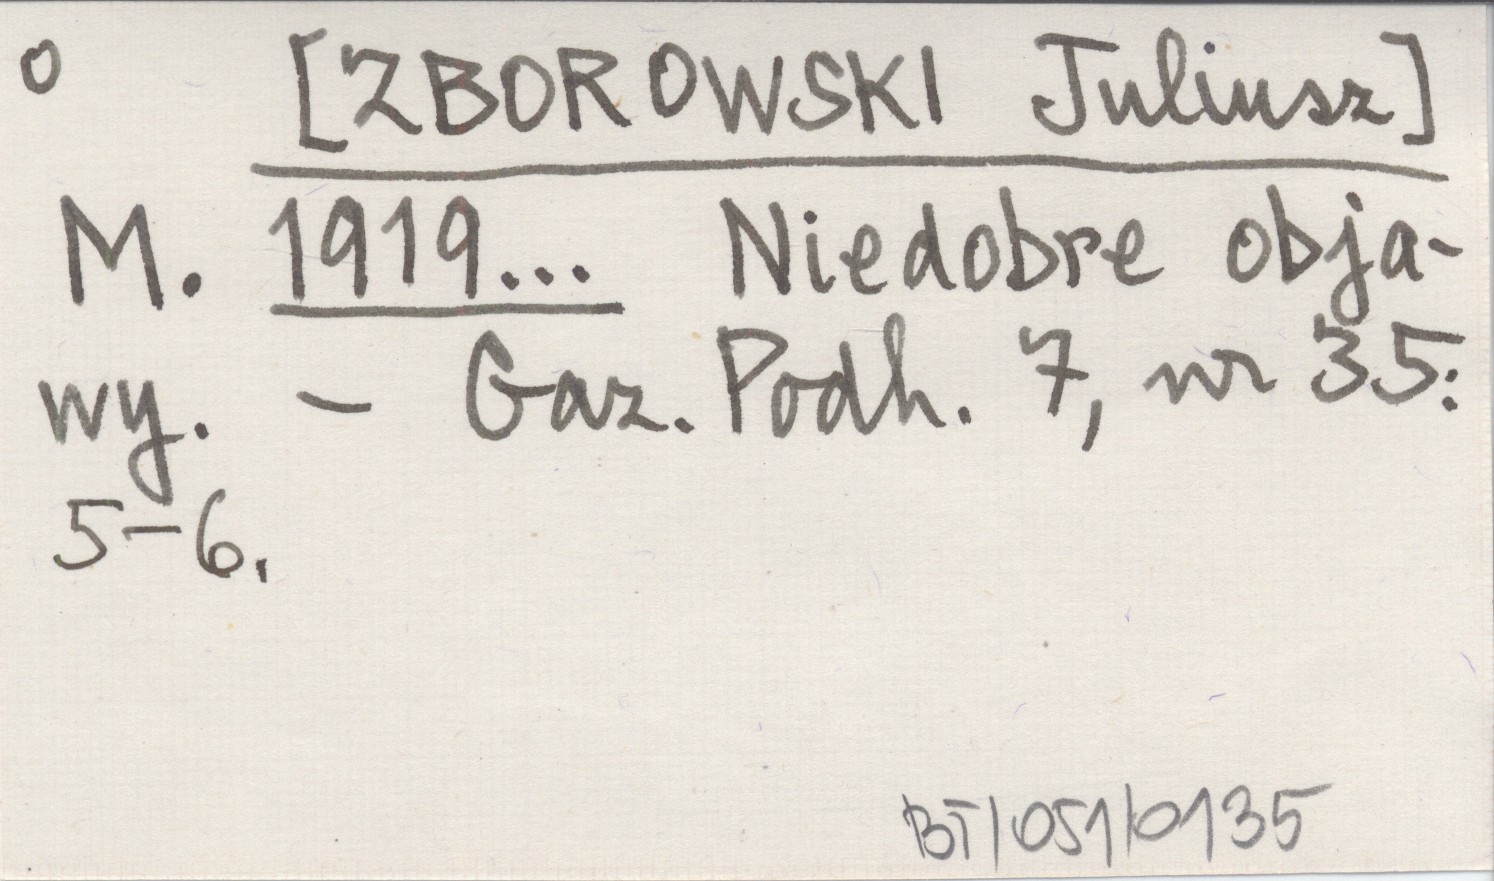 o [ZBOROWSKI Juliusz]
M. 1919... Niedobre obja-
wy. - Gaz. Podh. 7, nr 35:
5-6.
BT/051/0135